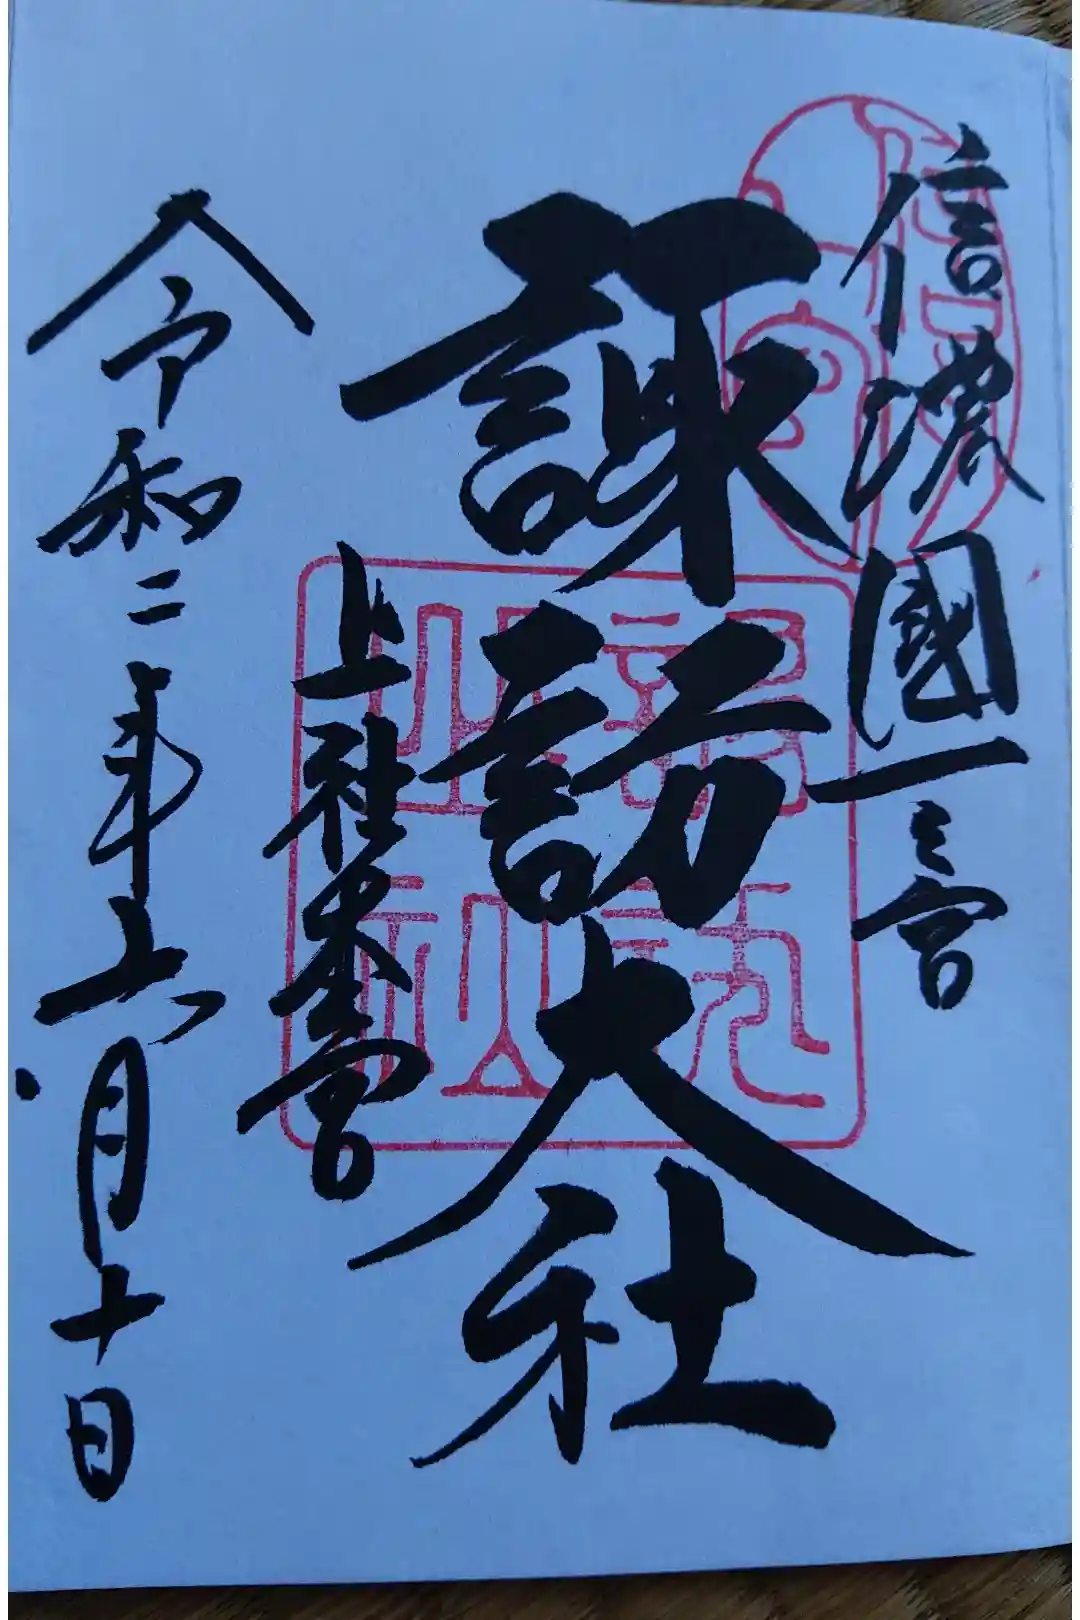 信濃國一之宮
諏訪大社
上社本宮
令和二年六月十日